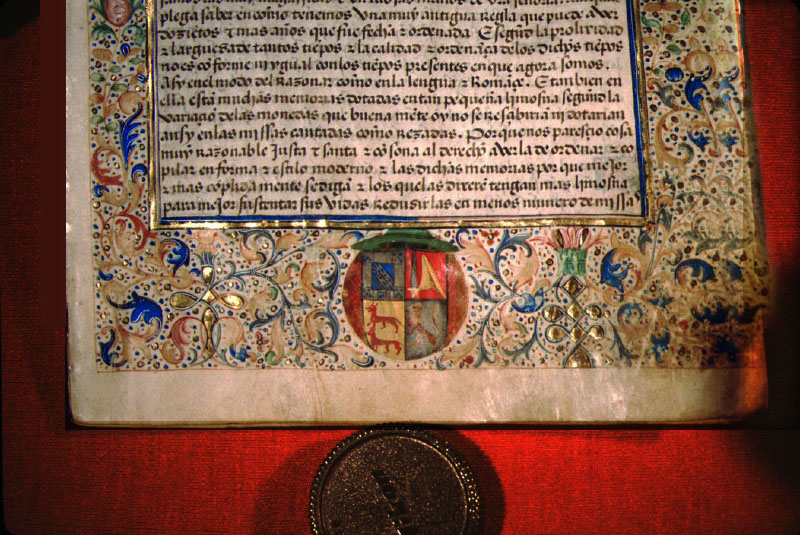 plega saber en como tenemos una muy antigua regla que puede aver
dozietos τ mas años que fue fecha τ ordenada. E segũd la prolixidad
τ largueza de tantos tiẽpos τ la calidad τ ordenãça de los dichos tiẽpos
no es cõforme ni ygual con los tiẽpos presentes en que agora somos.
Asy en el modo del razonar como en la lengua τ Romãçe. E tan bien en
ella estã muchas memorias dotadas en tan pequeña limosna segũnd la
variaçiõ de las monedas que buena mẽte oy no se resabirã ni dotarian
ansy en las missas cantadas como rezadas. Por que nos paresçio cosa
muy razonable Justa τ santa τ cõsona al derecho averla de ordenar τ co
pilar en forma τ estilo moderno τ las dichas memorias por que mejor
τ mas cõplida mente se digã τ los que las dixerẽ tengan mas limosna
para mejor sustentar sus vidas reduzir las en menos numero de missas